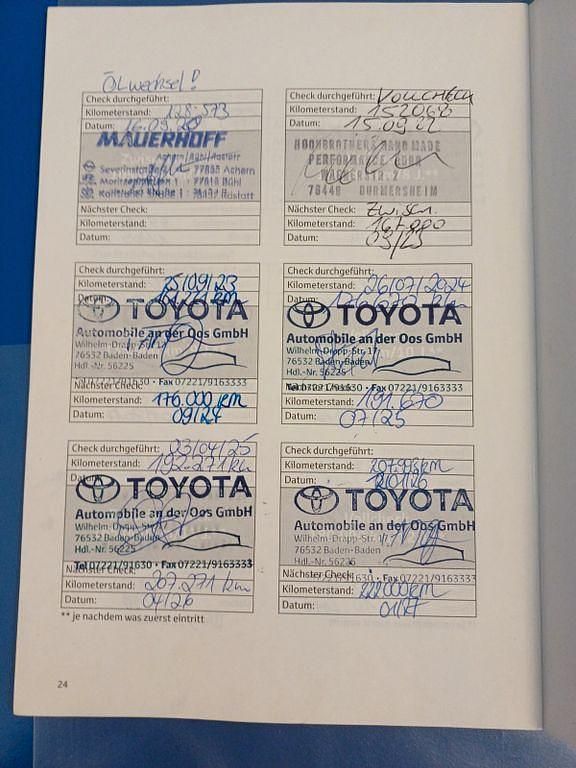 Ölwechsel!
Check durchgeführt:
Kilometerstand: 128.573
Datum: 16.09.20
MAUERHOFF
Achern/Bühl/Rastatt
77855 Achern
77815 Bühl
Rastatt
Nächster Check:
Kilometerstand:
Datum:
Check durchgeführt:
Kilometerstand: 152068
Datum: 15.09.22
PERFORMANCE
76448 DURMERSHEIM
Nächster Check: Zwisch.
Kilometerstand: 167.000
Datum: 03/23
Check durchgeführt:
Kilometerstand: 25/09/23
Datum:
TOYOTA
Automobile an der Oos GmbH
Wilhelm-Drapp-Str. 17
76532 Baden-Baden
Hdl.-Nr. 56225
Fax 07221/9163333
Kilometerstand: 176.000 km
Datum: 09/24
Check durchgeführt:
Kilometerstand: 26/07/2024
Datum:
TOYOTA
Automobile an der Oos GmbH
Wilhelm-Drapp-Str. 17
76532 Baden-Baden
Hdl.-Nr. 56225
Fax 07221/9163333
Kilometerstand: 191.670
Datum: 07/25
Check durchgeführt: 23/04/25
Kilometerstand: 192.271 km
Datum:
TOYOTA
Automobile an der Oos GmbH
Wilhelm-Drapp-Str. 17
76532 Baden-Baden
Hdl.-Nr. 56225
Tel 07221/91630 • Fax 07221/9163333
Nächster Check:
Kilometerstand: 207.271 km
Datum: 04/26
Check durchgeführt:
Kilometerstand:
Datum:
TOYOTA
Automobile an der Oos GmbH
Wilhelm-Drapp-Str. 17
76532 Baden-Baden
Hdl.-Nr. 56225
Nächster Check:
07221/91630 • Fax 07221/9163333
Kilometerstand: 222.000 km
Datum: 01/27
** je nachdem was zuerst eintritt
24